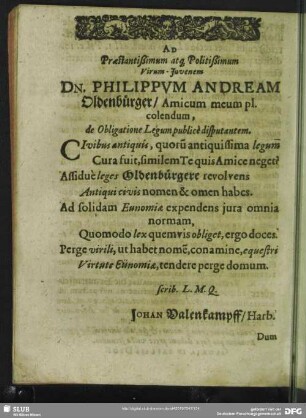 AD
Præstantißimum atq; Politißimum
Virum-Juvenem
DN. PHILIPPVM ANDREAM
Oldenbürger/ Amicum meum pl.
colendum,
de Obligatione Legum publicè disputantem.
CIvibus antiquis, quorũ antiquissima legum
Cura fuit, similem Te quis Amice neget?
Assiduè leges Oldenbürgere revolvens
Antiqui civis nomen & omen habes.
Ad solidam Eunomiæ expendens jura omnia
normam,
Quomodo lex quemvis obliget, ergo doces.
Perge virili, ut habet nomẽ, conamine, equestri
Virtute Eunomiæ, tendere perge domum.
scrib. L. M. Q.
JOHAN Dalenkampff/ Harb.
Dum
SLUB
Wir führen Wissen.
DFG